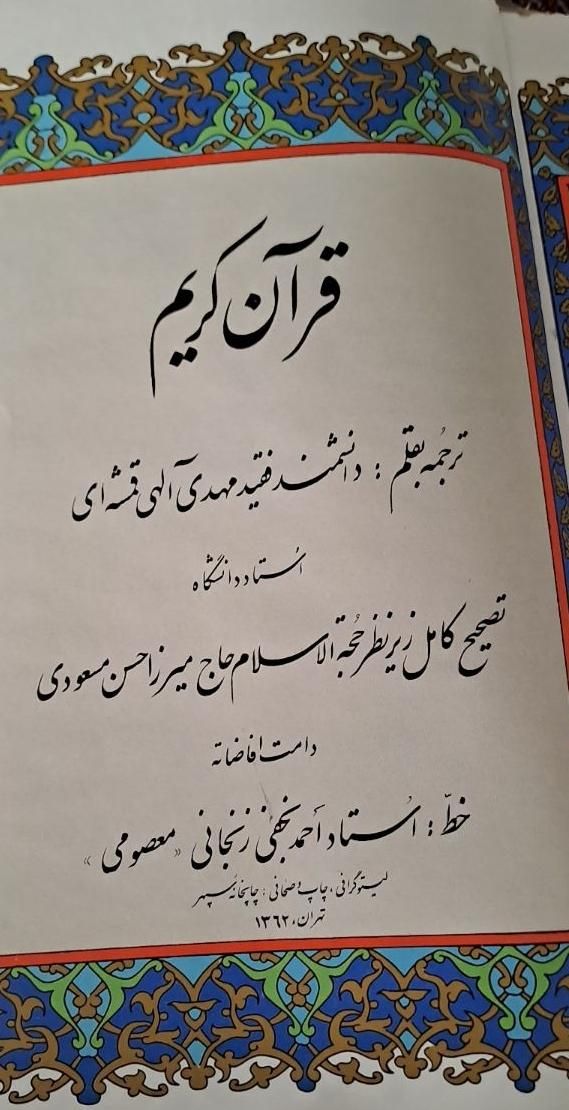 قرآن کریم
ترجمه بقلم : دانشمند فقید مهدی آلهی قمشه‌ای
اُستاد دانشگاه
تصحیح کامل زیر نظر حُجة الاسلام حاج میرزا حسن مسعودی
دامت افاضاته
خطّ : اُستاد احمد نجفی زنجانی «معصومی»
لیتوگرافی، چاپ و صحافی : چاپخانه سپهر
تهران، ۱۳۶۲